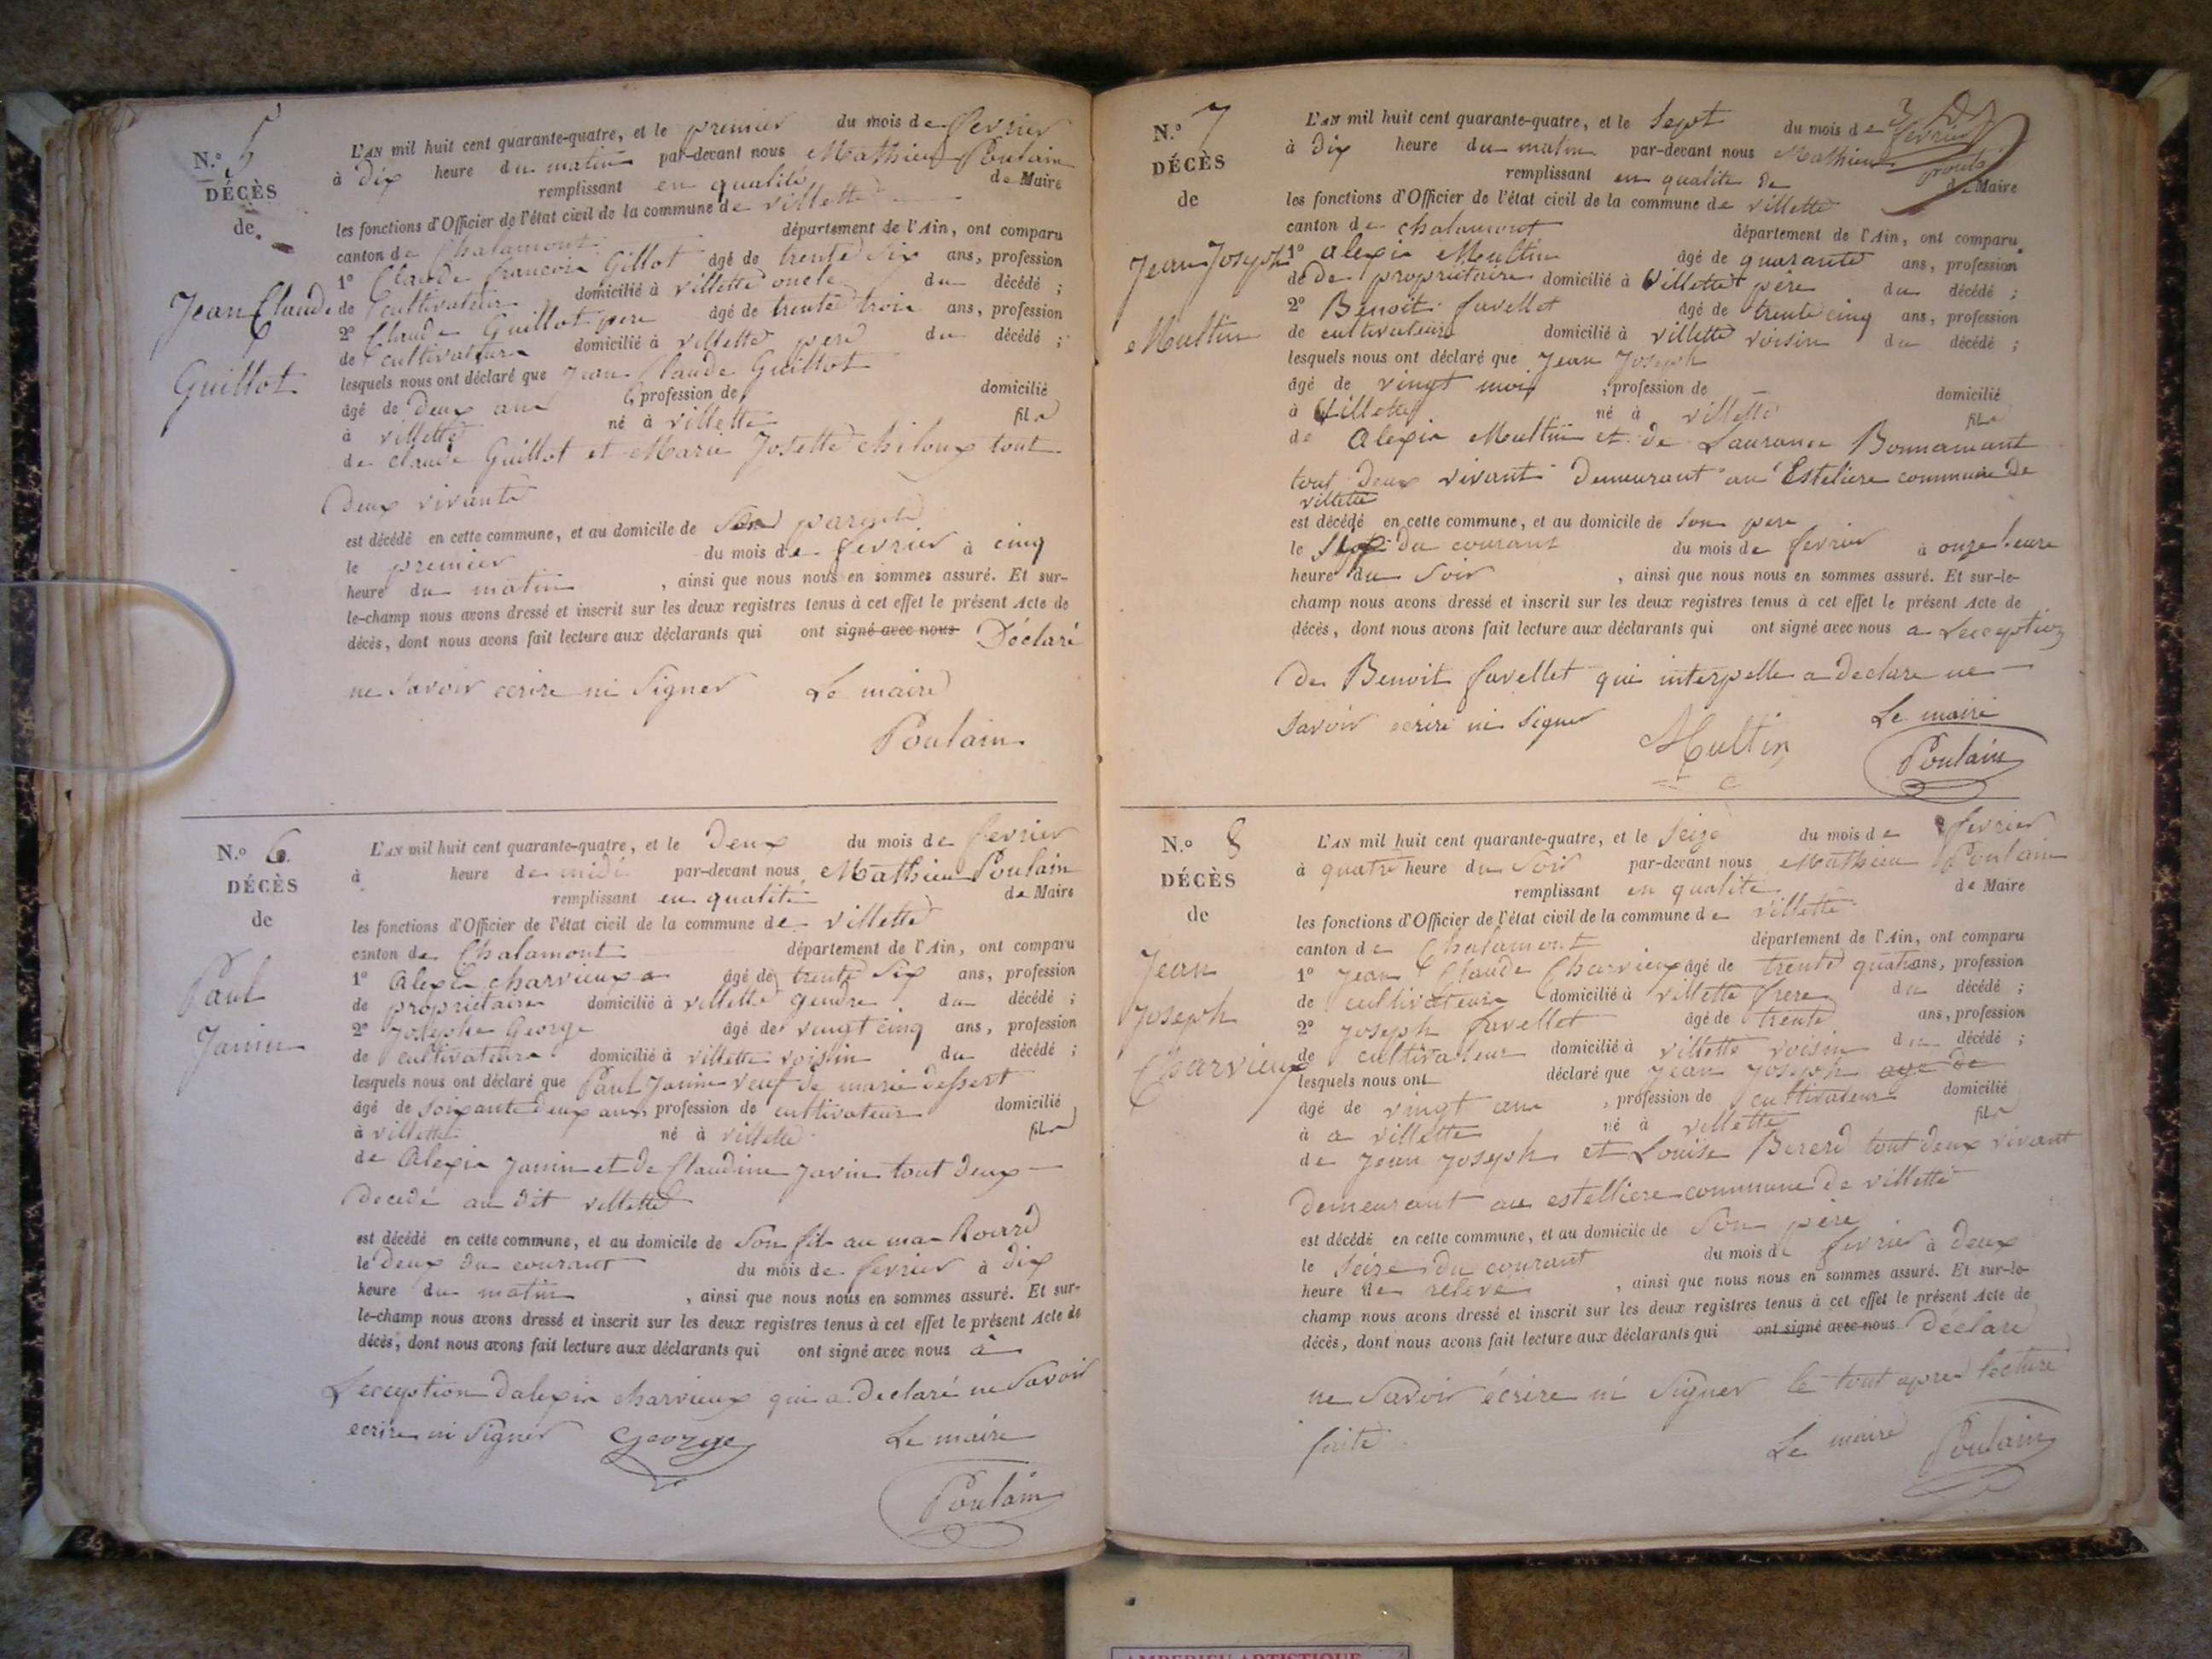 N.o 5
DÉCÈS
de
Jean Claude
Guillot
L'AN mil huit cent quarante-quatre, et le premier du mois de fevrier
à dix heure du matin par-devant nous Mathieu Poulain
remplissant en qualité de Maire
les fonctions d'Officier de l'état civil de la commune de villette
canton de Chalamont département de l'Ain, ont comparu
1o Claude francois Gillot âgé de trente six ans, profession
de cultivateur domicilié à villette oncle du décédé ;
2o Claude Guillot pere âgé de trente trois ans, profession
de cultivateur domicilié à villette pere du décédé ;
lesquels nous ont déclaré que Jean Claude Guillot
âgé de deux ans , profession de domicilié
à villette né à villette fils
de claude Guillot et Marie Josette chiloux tout
Deux vivants
est décédé en cette commune, et au domicile de
le premier du mois de fevrier à cinq
heure du matin , ainsi que nous nous en sommes assuré. Et sur-
le-champ nous avons dressé et inscrit sur les deux registres tenus à cet effet le présent Acte de
décès, dont nous avons fait lecture aux déclarants qui ont signé avec nous Déclaré
ne savoir ecrire ni Signer Le maire
Poulain
N.o 6
DÉCÈS
de
Paul
Janin
L'AN mil huit cent quarante-quatre, et le Deux du mois de fevrier
à heure de midi par-devant nous Mathieu Poulain
remplissant en qualité de Maire
les fonctions d'Officier de l'état civil de la commune de villette
canton de Chalamont département de l'Ain, ont comparu
1o Alexis charvieux âgé de trente six ans, profession
de propriétaire domicilié à villette gendre du décédé ;
2o Josephe George âgé de vingt cinq ans, profession
de cultivateur domicilié à villette voisin du décédé ;
lesquels nous ont déclaré que Paul Janin veuf de marie dessert
âgé de soixante deux ans, profession de cultivateur domicilié
à villette né à villette fils
de Alexis Janin et de Claudine Javin tout deux
Decedé au dit villette
est décédé en cette commune, et au domicile de Son fils au
le Deux du courant du mois de fevrier à dix
heure du matin , ainsi que nous nous en sommes assuré. Et sur-
le-champ nous avons dressé et inscrit sur les deux registres tenus à cet effet le présent Acte de
décès, dont nous avons fait lecture aux déclarants qui ont signé avec nous à
Lexception dalexis charvieux qui a declaré ne Savoir
ecrire ni Signer George Le maire
Poulain
N.o 7
DÉCÈS
de
Jean Joseph
Multin
L'AN mil huit cent quarante-quatre, et le Sept du mois de fevrier
à dix heure du matin par-devant nous Mathieu
remplissant en qualite de de Maire
les fonctions d'Officier de l'état civil de la commune de villette
canton de chalamont département de l'Ain, ont comparu
1o alexis Multin âgé de quarante ans, profession
de de propriétaire domicilié à villette père du décédé ;
2o Benoit favellet âgé de trente cinq ans, profession
de cultivateur domicilié à villette voisin du décédé ;
lesquels nous ont déclaré que Jean Joseph
âgé de vingt mois , profession de – domicilié
à villette né à villette fils
de Alexis Multin et de Laurance Bonnamant
tout Deux vivant Demeurant au Esteliere commune de
villette
est décédé en cette commune, et au domicile de son pere
le du courant du mois de fevrier à onze heure
heure du soir , ainsi que nous nous en sommes assuré. Et sur-le-
champ nous avons dressé et inscrit sur les deux registres tenus à cet effet le présent Acte de
décès, dont nous avons fait lecture aux déclarants qui ont signé avec nous a Lecception
De Benoit favellet qui interpelle a declare ne
savoir ecrire ni signer Le maire
Multin Poulain
N.o 8
DÉCÈS
de
Jean
Joseph
Charvieux
L'AN mil huit cent quarante-quatre, et le Seize du mois de fevrier
à quatre heure du Soir par-devant nous Mathieu Poulain
remplissant en qualité de Maire
les fonctions d'Officier de l'état civil de la commune de villette
canton de Chalamont département de l'Ain, ont comparu
1o Jean Claude Charvieux âgé de trente quatre ans, profession
de cultivateur domicilié à villette frere du décédé ;
2o Joseph favellet âgé de trente ans, profession
de cultivateur domicilié à villette voisin du décédé ;
lesquels nous ont déclaré que Jean Joseph age de
âgé de vingt ans , profession de cultivateur domicilié
à a villette né à villette fils
de Jean Joseph et Louise Bererd tout deux vivant
demeurant au estelliere commune de villette
est décédé en cette commune, et au domicile de Son père
le seize du courant du mois de fevrier à deux
heure de relevé , ainsi que nous nous en sommes assuré. Et sur-le-
champ nous avons dressé et inscrit sur les deux registres tenus à cet effet le présent Acte de
décès, dont nous avons fait lecture aux déclarants qui ont signé avec nous Déclaré
ne savoir écrire ni Signer le tout apres lecture
faite Le maire Poulain